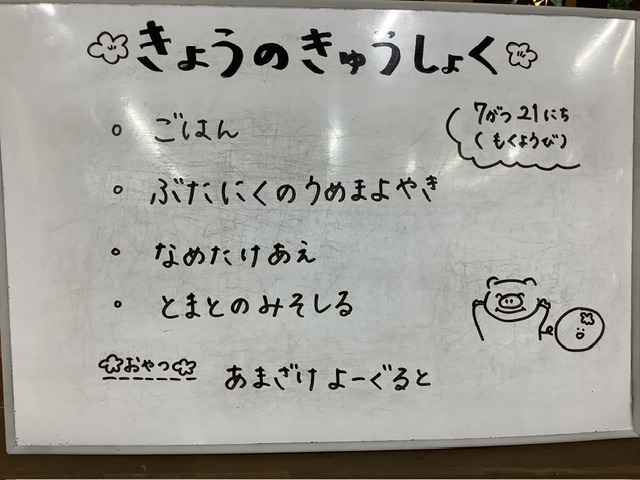 きょうのきゅうしょく
7がつ21にち
(もくようび)
。ごはん
。ぶたにくのうめまよやき
。なめたけあえ
。とまとのみそしる
おやつ あまざけよーぐると